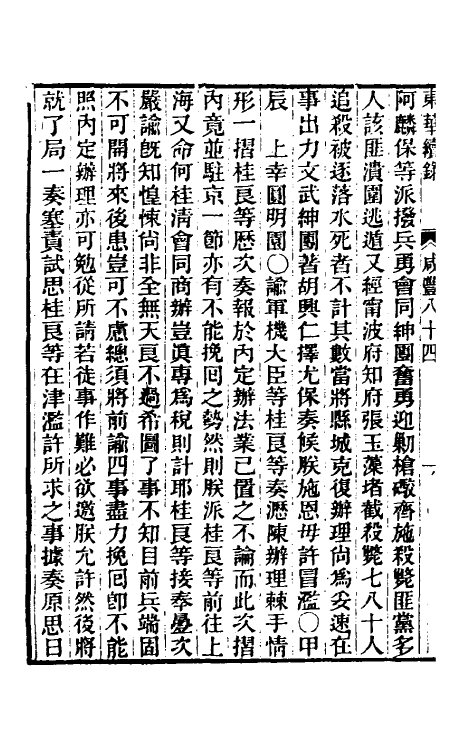 東華續錄　咸豐八十四　一
阿麟保等派撥兵勇會同紳團奮勇迎勦槍礮齊施殺斃匪黨多
人該匪潰圍逃遁又經甯波府知府張玉藻堵截殺斃七八十人
追殺被逐落水死者不計其數當將縣城克復辦理尚爲妥速在
事出力文武紳團著胡興仁擇尤保奏候朕施恩毋許冒濫〇甲
辰　上幸圓明園〇諭軍機大臣等桂良等奏瀝陳辦理棘手情
形一摺桂良等歷次奏報於內定辦法業已置之不論而此次摺
內竟並駐京一節亦有不能挽回之勢然則朕派桂良等前往上
海又命何桂清會同商辦豈眞專爲稅則計耶桂良等接奉屢次
嚴諭旣知惶悚尚非全無天良不過希圖了事不知目前兵端固
不可開將來後患豈可不慮總須將前諭四事盡力挽回卽不能
照內定辦理亦可勉從所請若徒事作難必欲邀朕允許然後將
就了局一奏塞責試思桂良等在津濫許所求之事據奏原思日